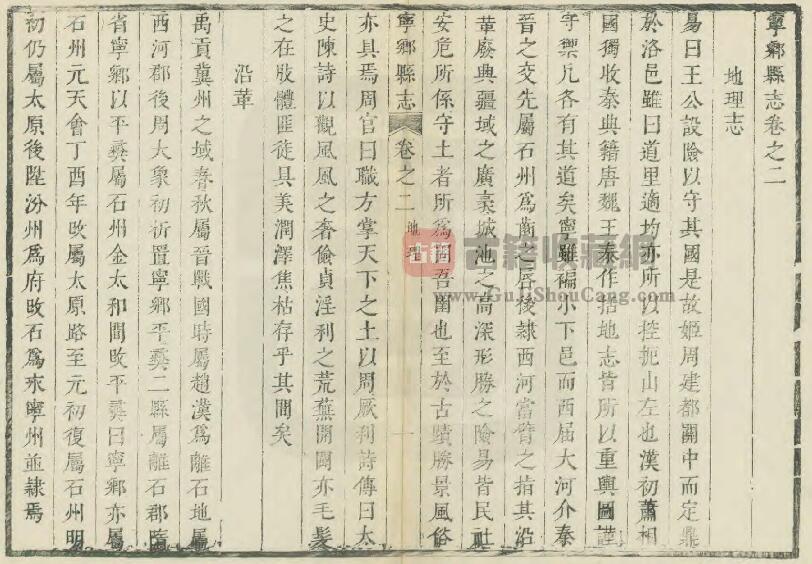 寧鄉縣志卷之二
地理志
易曰王公設險以守其國是故姬周建都關中而定鼎
於洛邑雖曰道里適均亦所以控扼山左也漢初蕭相
國獨收秦典籍唐魏王泰作括地志皆所以重輿圖謹
守禦凡各有其道矣寧雖褊小下邑而西屆大河介秦
晉之交先屬石州為藺之唇後隸西河當臂之指其沿
革廢興疆域之廣袤城池之高深形勝之險易皆民社
安危所係守土者所為固吾圉也至於古蹟勝景風俗
寧鄉縣志
卷之二
地理
一
亦具焉周官曰職方掌天下之土以周厥利詩傳曰太
史陳詩以觀風風之奢儉貞淫利之荒蕪開闢亦毛髮
之在肢體匪徒具美潤澤焦枯存乎其間矣
沿革
禹貢冀州之域春秋屬晉戰國時屬趙漢為離石地屬
西河郡後周大象初析置寧鄉平彛二縣屬離石郡隋
省寧鄉以平彛屬石州金太和間改平彛曰寧鄉亦屬
石州元天會丁酉年改屬太原路至元初復屬石州明
初仍屬太原後陞汾州為府改石為永寧州並隸焉
古籍
古籍收藏網
www.GuJiShouCang.com